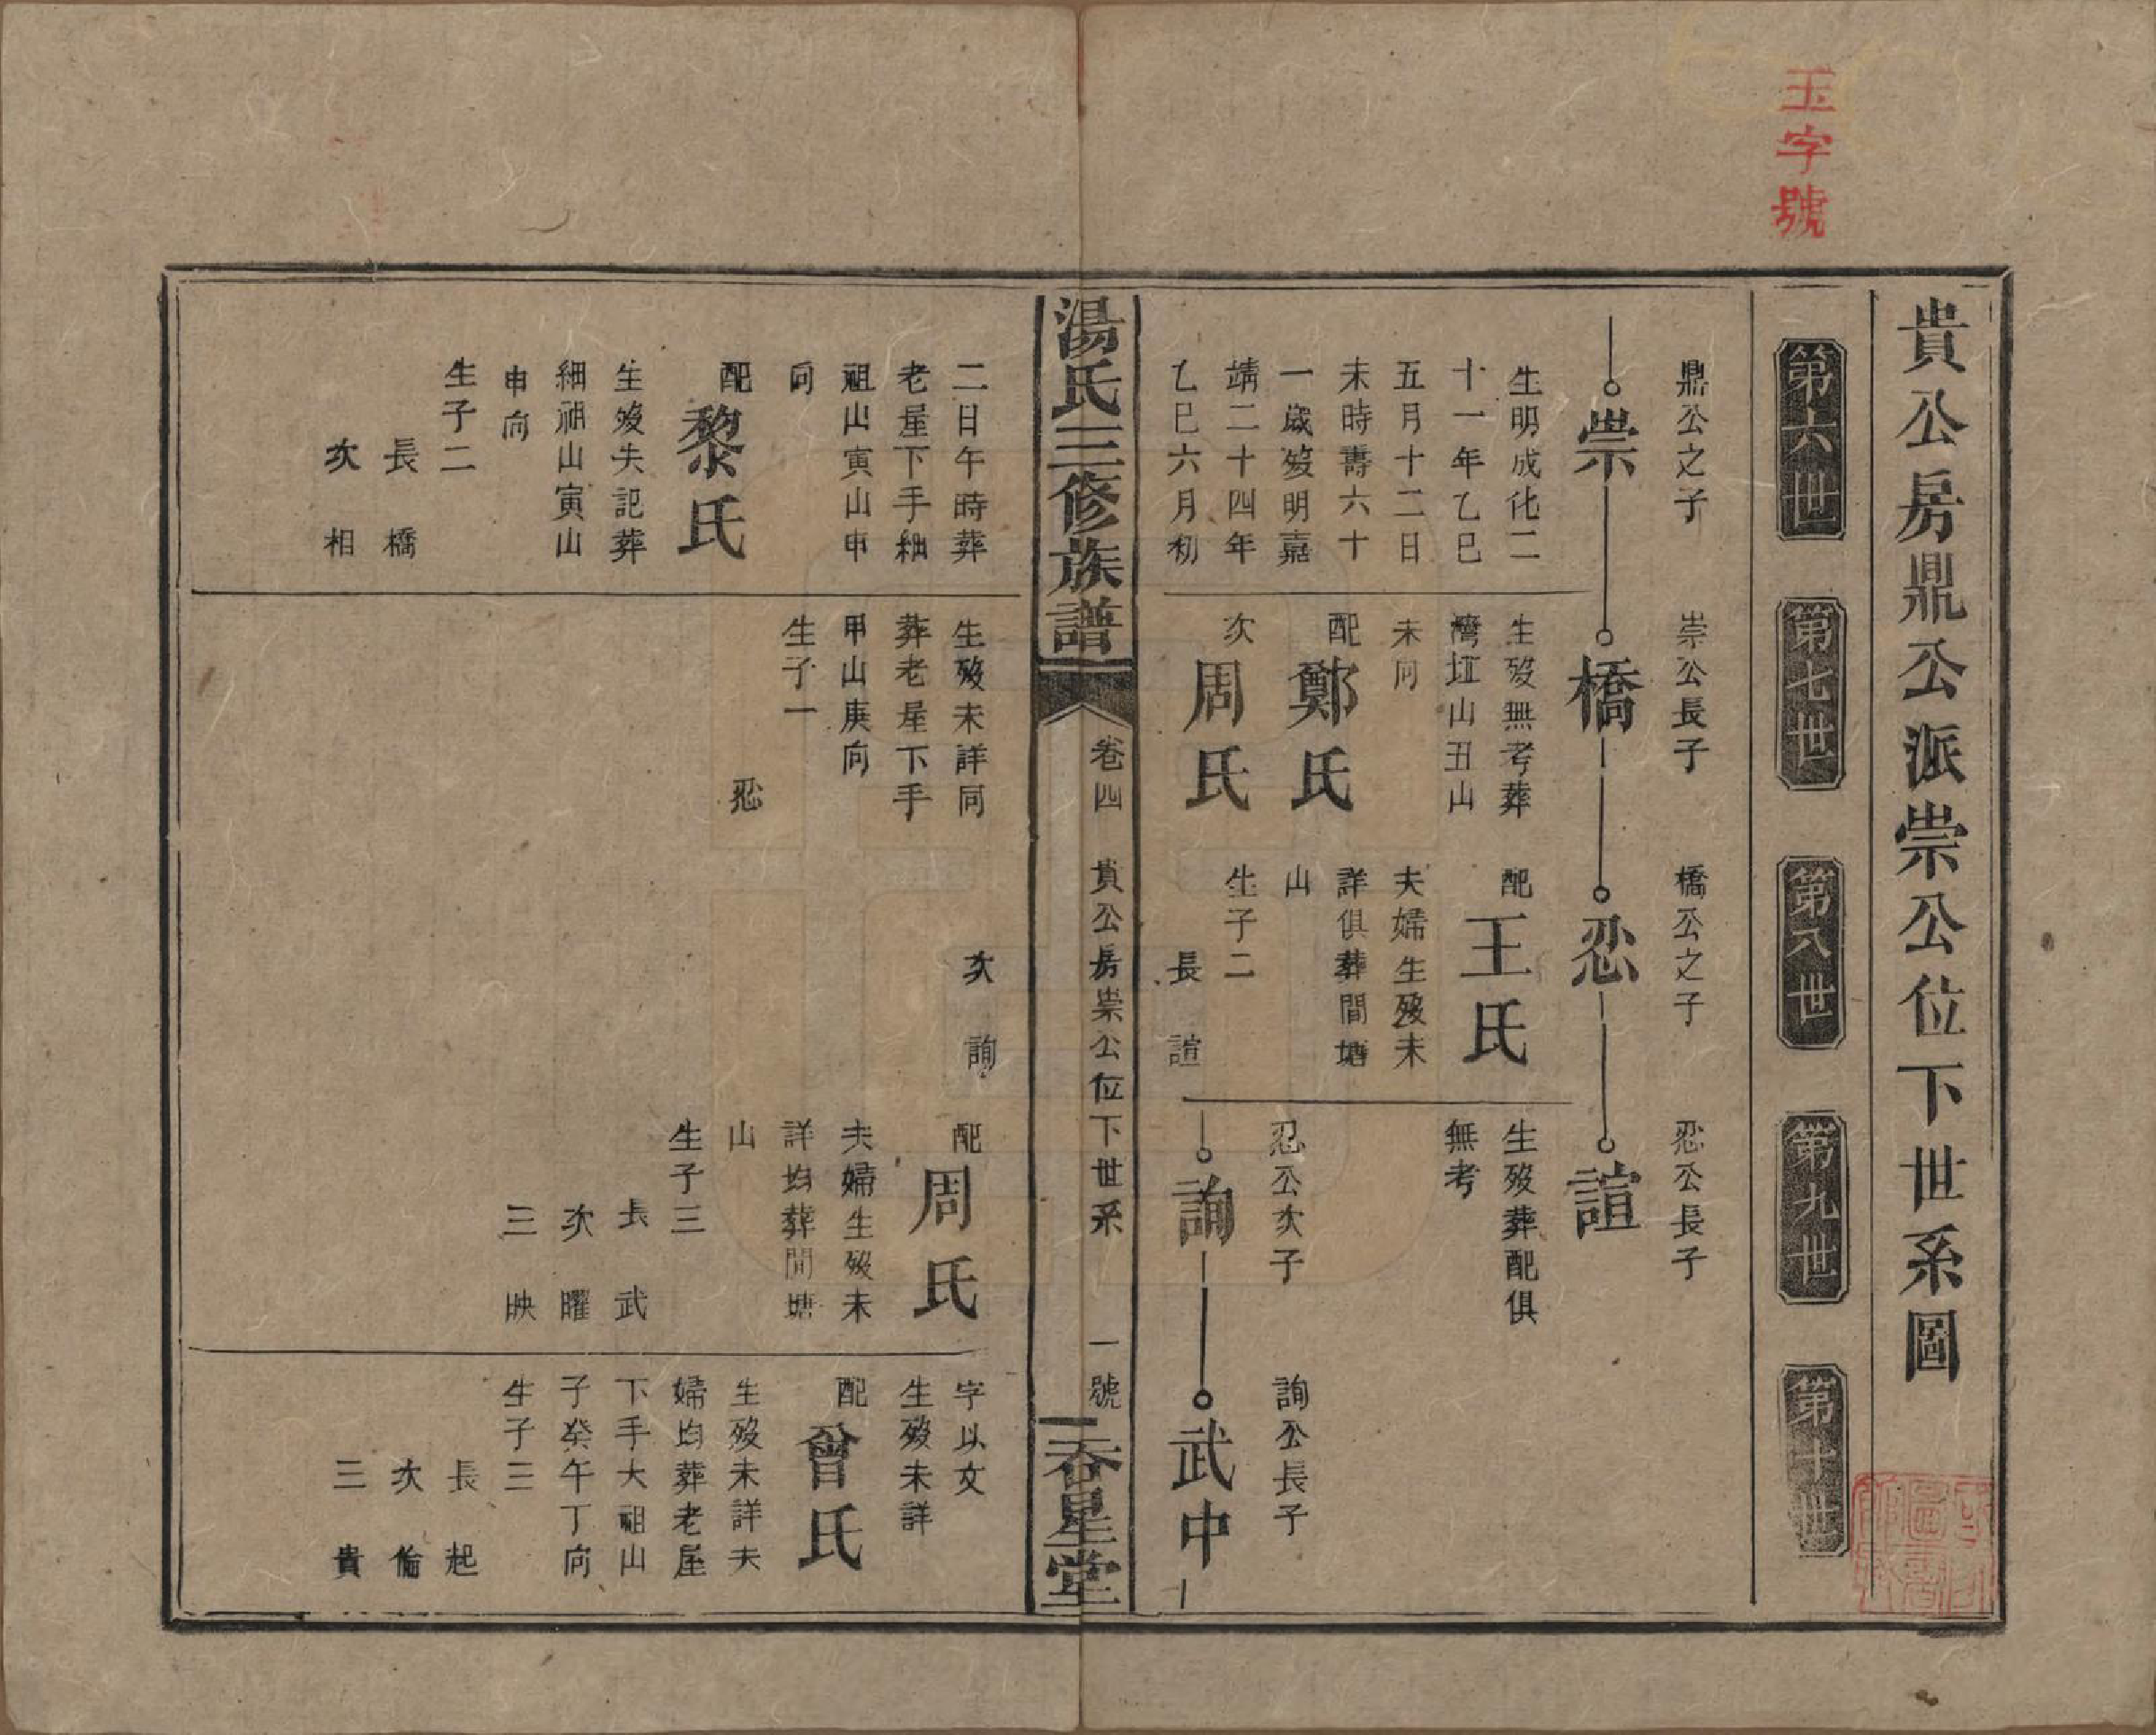 玉字號
貴公房鼎公派崇公位下世系圖
第六世
第七世
第八世
第九世
第十世
鼎公之子
崇
生明成化二
十一年乙巳
五月十二日
未時壽六十
一歲歿明嘉
靖二十四年
乙巳六月初
二日午時葬
老屋下手細
祖山寅山申
向
配
黎氏
生歿失記葬
細祖山寅山
申向
生子二
長 橋
次 相
崇公長子
橋
生歿無考葬
灣坵山丑山
未向
配
鄭氏
次
周氏
生歿未詳同
葬老屋下手
甲山庚向
生子一
忍
橋公之子
忍
配
王氏
夫婦生歿未
詳俱葬間塘
山
生子二
長 諠
次 詢
忍公長子
諠
生歿葬配俱
無考
忍公次子
詢
配
周氏
夫婦生歿未
詳均葬間塘
山
生子三
長 武
次 曜
三 映
詢公長子
武中
字以文
生歿未詳
配
曾氏
生歿未詳夫
婦均葬老屋
下手大祖山
子癸午丁向
生子三
長 起
次 倫
三 貴
湯氏三修族譜
卷四
貴公房崇公位下世系
一號
吞星堂